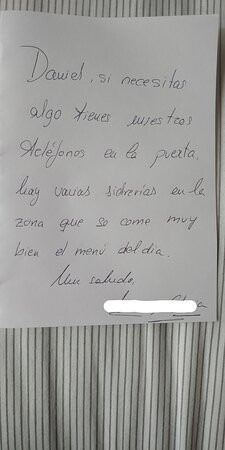 Daniel, si necesitas
algo tienes nuestros
teléfonos en la puerta,
hay varias sidrerías en la
zona que se come muy
bien el menú del día.
Un saludo,